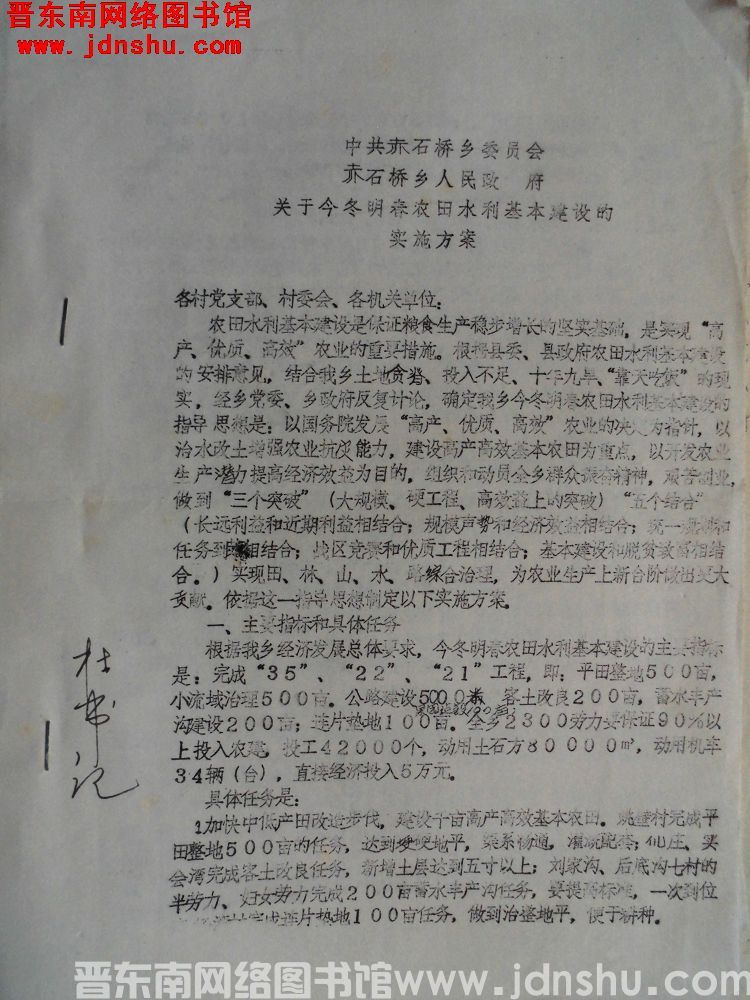 晋东南网络图书馆
www.jdnshu.com
中共赤石桥乡委员会
赤石桥乡人民政 府
关于今冬明春农田水利基本建设的
实施方案
各村党支部、村委会、各机关单位:
农田水利基本建设是保证粮食生产稳步增长的坚实基础,是实现“高
产、优质、高效”农业的重要措施。根据县委、县政府农田水利基本建设
的安排意见,结合我乡土地贪瘠、投入不足、十年九旱、“靠天吃饭”的现
实,经乡党委、乡政府反复讨论,确定我乡今冬明春农田水利基本建设的
指导 思想是:以国务院发展“高产、优质、高效”农业的决定为指针,以
治水改土增强农业抗灾能力,建设高产高效基本农田为重点,以开发农业
生产潜力提高经济效益为目的,组织和动员全乡群众振奋精神,艰苦创业,
做到“三个突破”(大规模、硬工程、高效益上的突破)“五个结合”
(长远利益和近期利益相结合;规模声势和经济效益相结合;统一规划和
任务到 相结合;战区竞赛和优质工程相结合;基本建设和脱贫致富相结
合。)实现田、林、山、水、路综合治理,为农业生产上新台阶做出更大
贡献。依据这一指导思想制定以下实施方案。
一、主要指标和具体任务
根据我乡经济发展总体要求,今冬明春农田水利基本建设的主要指标
是:完成“35”、“22”、“21”工程,即:平田整地500亩,
小流域治理500亩。公路建设5000米 客土改良200亩,蓄水丰产
沟建设200亩;连片垫地100亩。全乡2300劳力要保证90%以
上投入农建,投工42000个,动用土石方80000m³,动用机车
34辆(台),直接经济投入5万元。
具体任务是:
1加快中低产田改造步伐,建设千亩高产高效基本农田。姚壁村完成平
田整地500亩的任务,达到埂硬地平,渠系畅通,灌溉配套;
会湾完成客土改良任务,新增土层达到五寸以上;刘家沟、后底沟七村的
半劳力、妇女劳力完成200亩蓄水丰产沟任务,要提高标准,一次到位
完成连片垫地100亩任务,做到治整地平,便于耕种。
杜书记
晋东南网络图书馆www.jdnshu.com